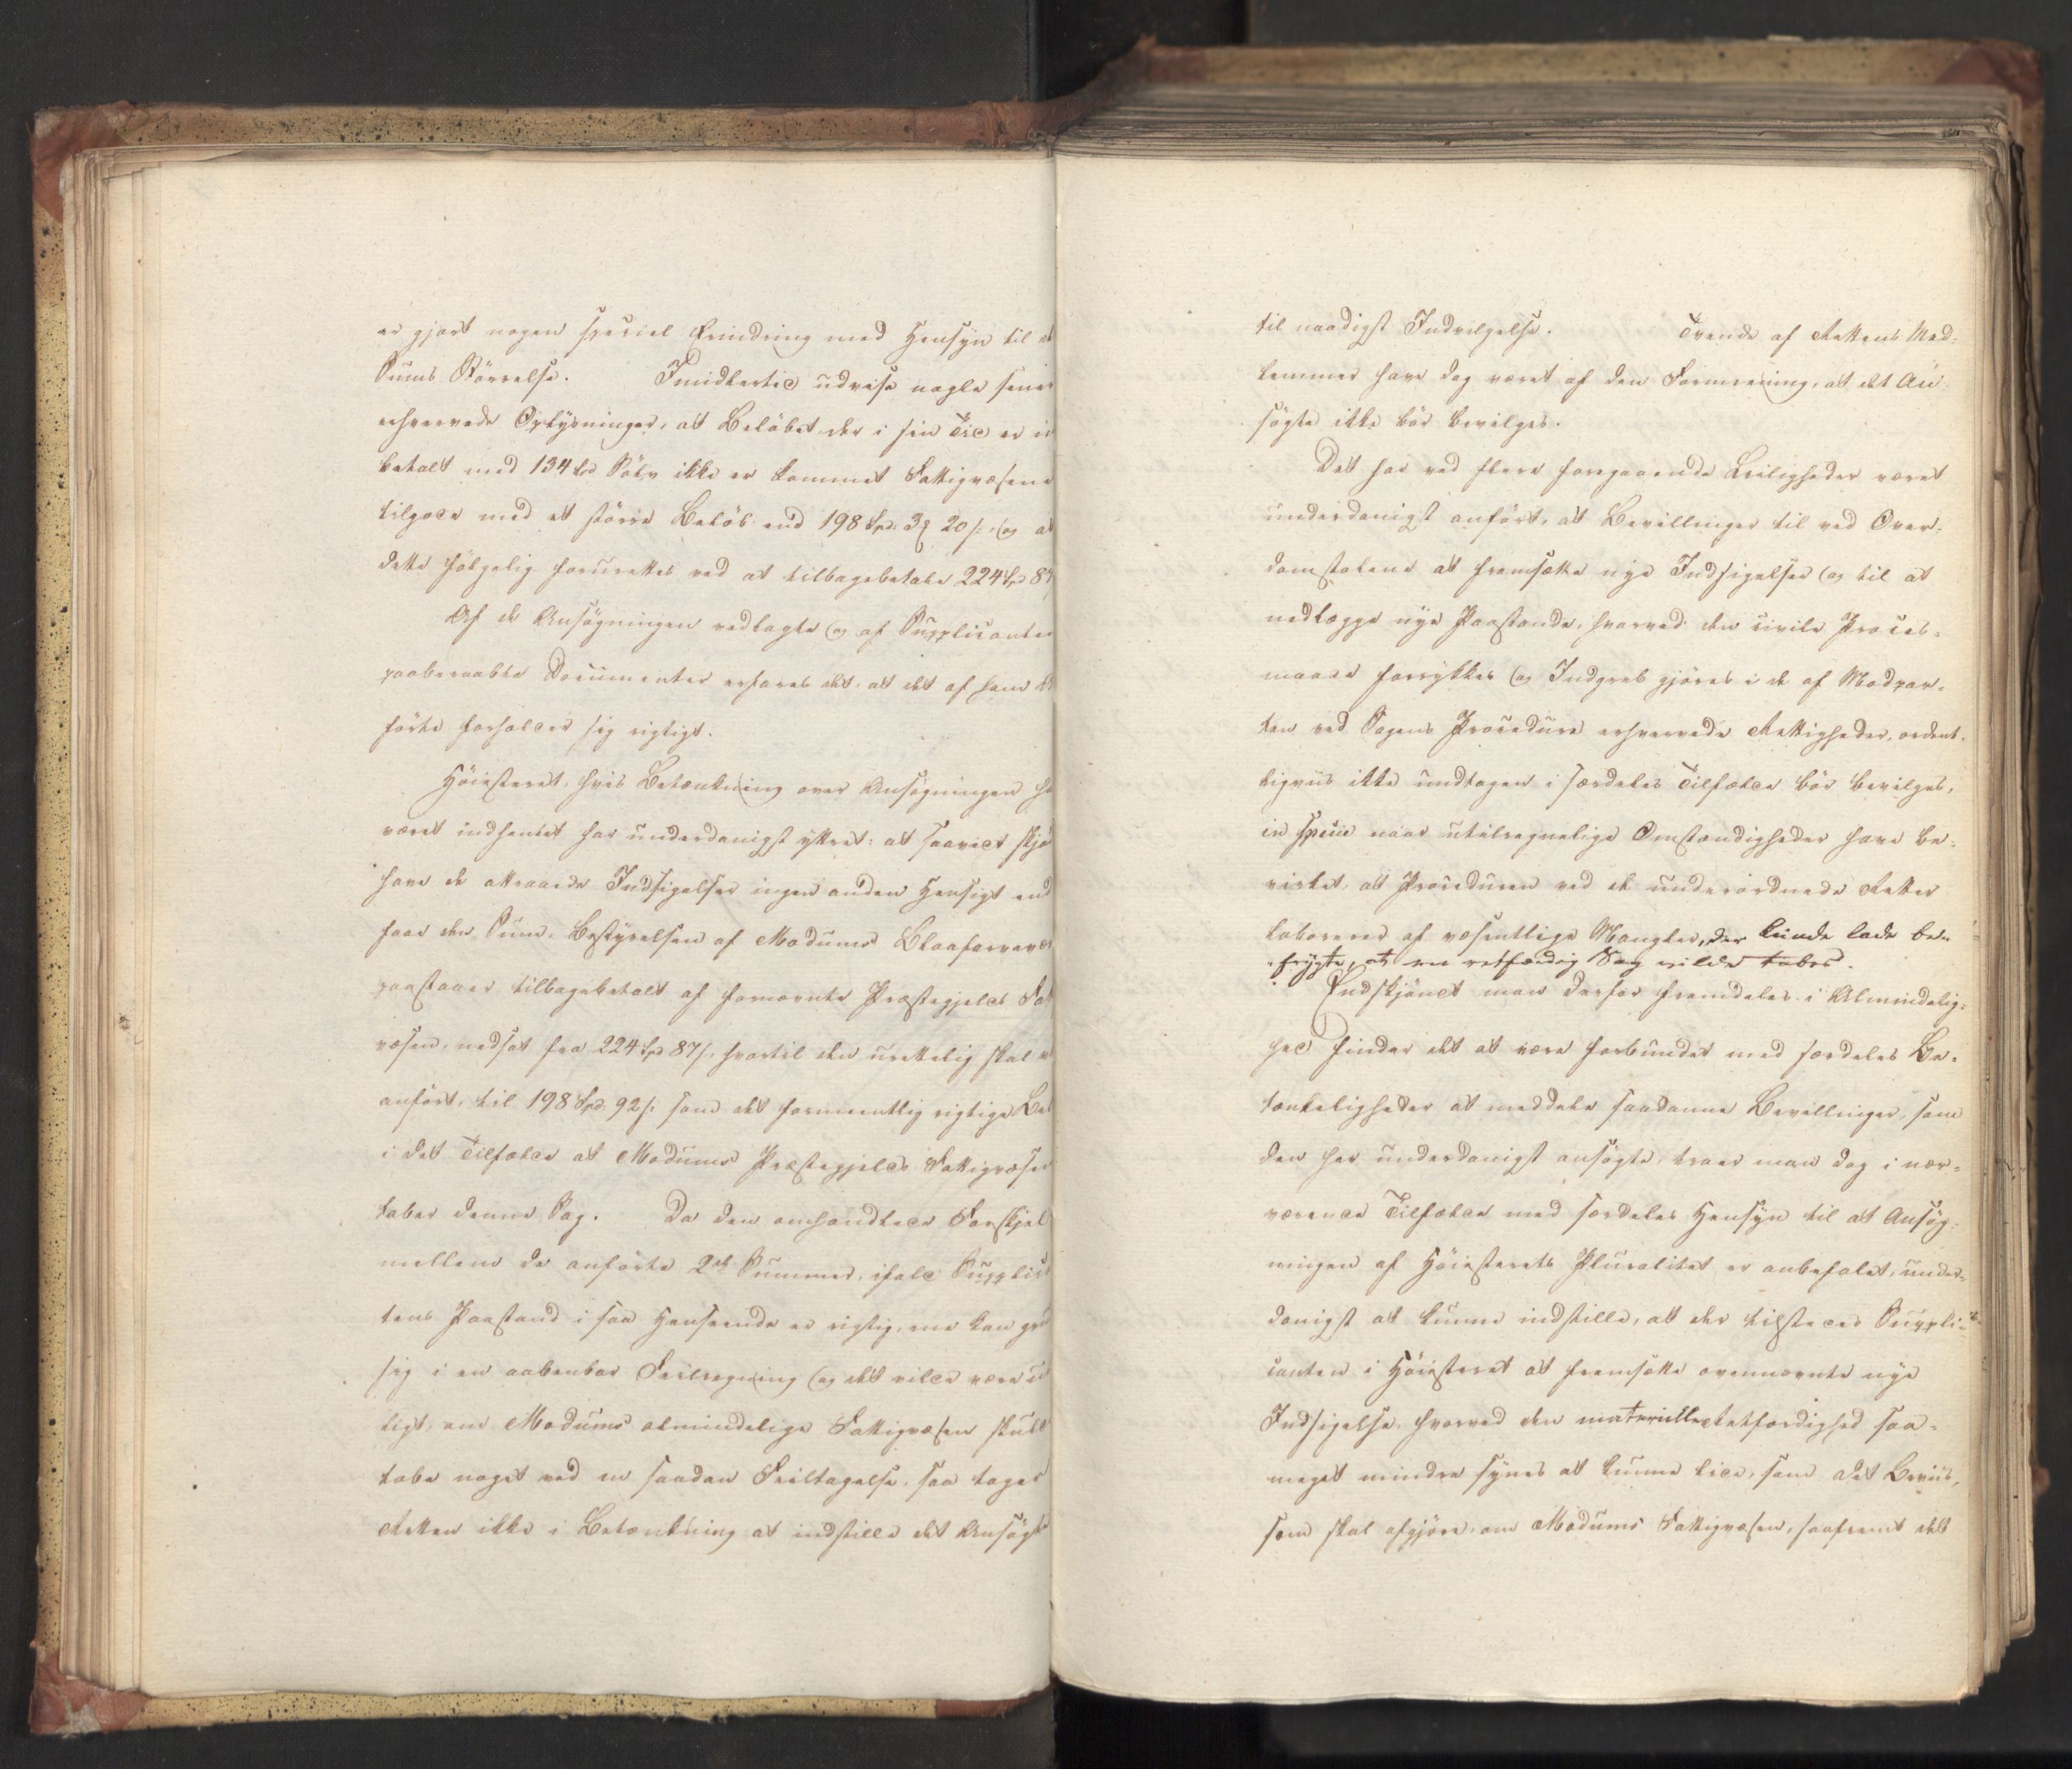 er gjort nogen speciel Erindring med Hensyn til at
Sums Størrelse. Imidlertid udvise nogle sener
erhvervede Oplysninger, at Beløbet der i sin Tid er in
betalt med 134 Spd Sølv ikke er kommet Fattigvæsene
tilgode med et større Beløb end 198 Spd. 3 20 s., og at
dette følgelig forurettes ved at tilbagebetale 224 Spd 87
Af de Ansøgningen vedlagte og af Supplicanten
paaberaabte Documenter erfares det, at det af ham
førte forholder sig rigtigt.
Høiesteret, hvis Betænkning over Ansøgningen ha
været indhentet har underdanigst yttret: at saavidt skjø
have de attraaede Indsigelser ingen anden Hensigt end
faae den Sum, Bestyrelsen af Modums Blaafarvevær
paastaaer tilbagebetalt af fornævnte Præstegjelds Fat
væsen, nedsat fra 224 Spd 87 s., hvortil den urettelig skal v
anført, til 198 Spd. 92 s. som det formeentlig rigtige Bel
i det Tilfælde at Modums Præstegjelds Fattigvæsen
taber denne Sag. Da den omhandlede Forskjel
mellem de anførte 2de Summer, ifald Supplica
tens Paastand i saa Henseende er rigtig, ene kan gru
sig i en aabenbar Feilregning og det vilde være u
ligt, om Modums almindelige Fattigvæsen skuld
tabe noget ved en saadan Feiltagelse, saa tager
Retten ikke i Betænkning at indstille det Ansøgte
til naadigst Indvilgelse. Trende af Rettens Med-
lemmer have dog været af den Formening, at det An-
søgte ikke bør bevilges.
Det har ved flere foregaaende Leiligheder været
underdanigst anført, at Bevillinger til ved Over-
domstolene at fremsætte nye Indsigelser og til at
nedlægge nye Paastande, hvorved den civile Proces-
maade forrykkes og Indgreb gjøres i de af Modpar-
ten ved Sagens Procedure erhvervede Rettigheder, ordent-
ligviis ikke undtagen i særdeles Tilfælde bør bevilges,
in specie naar utilregnelige Omstændigheder have be-
virket, at Proceduren ved de underordnede Retter
laborerer af væsentlige Mangler, der kunde lade be-
frygte, at en retfærdig Sag vilde tabes.
Endskjøndt man derfor fremdeles i Almindelig-
hed finder det at være forbundet med særdeles Be-
tænkeligheder at meddele saadanne Bevillinger, som
den her underdanigst ansøgte, troer man dog i nær-
værende Tilfælde med særdeles Hensyn til at Ansøg-
ningen af Høiesterets Pluralitet er anbefalet, under-
danigst at kunne indstille, at der tilstedes Suppli-
canten i Høiesteret at fremsætte ovennævnte nye
Indsigelse, hvorved den materielle Retfærdighed saa-
meget mindre synes at kunne lide, som det Beviis,
som skal afgjøre, om Modums Fattigvæsen, saafremt det